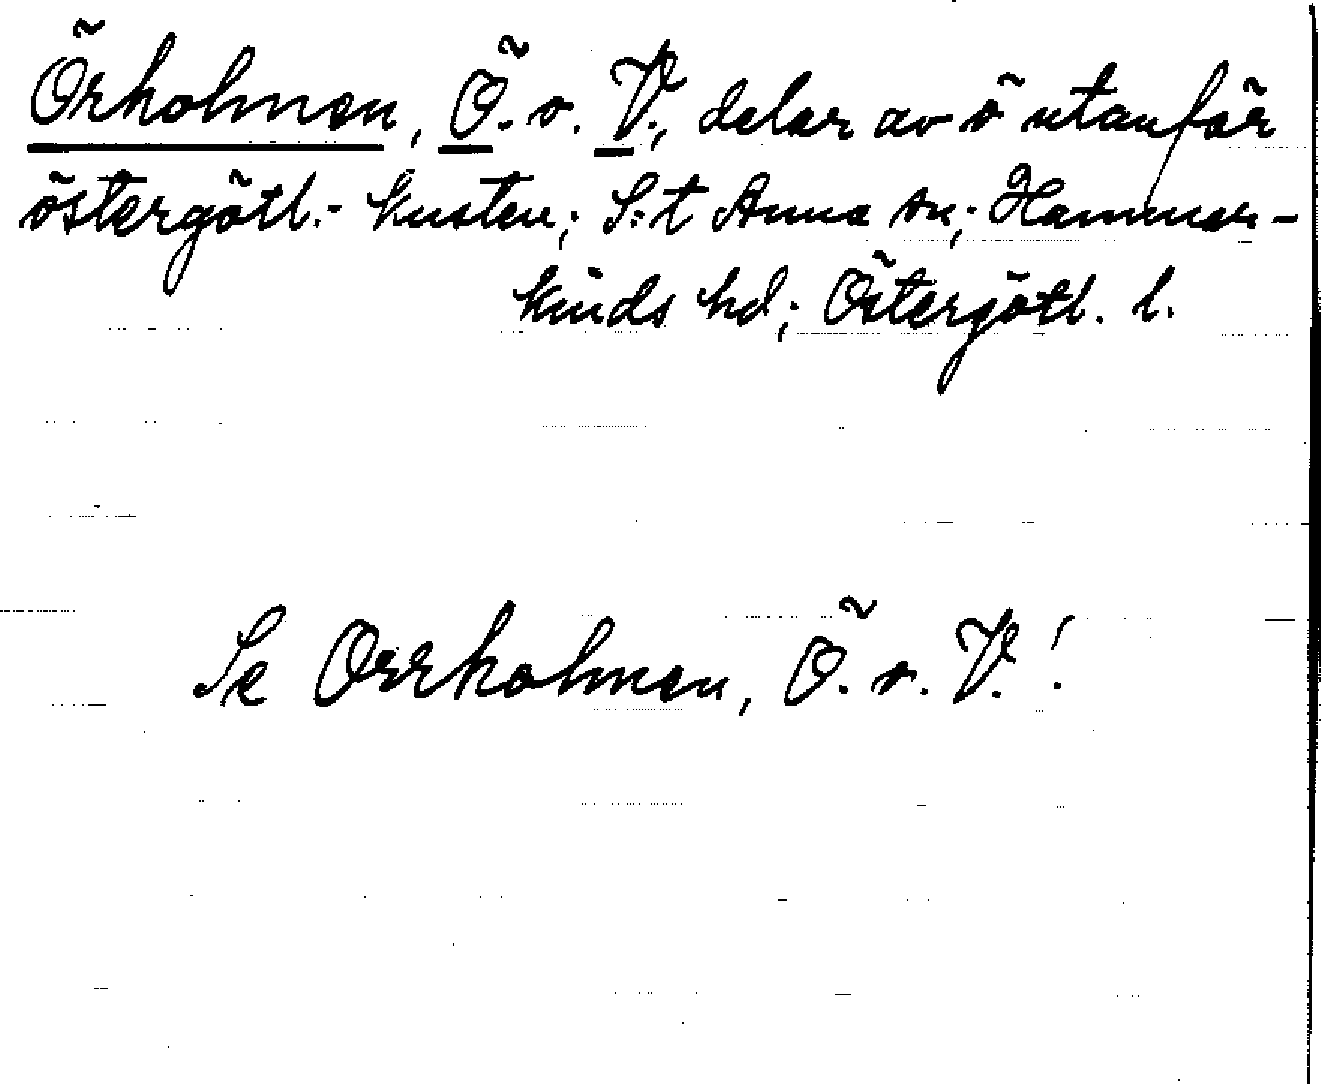 Örholmen, Ö. o. V., delar av ö utanför
östergötl.- kusten; S:t Anna sn; Hammar-
kinds hd; Östergötl. l.
Se Orrholmen, Ö. o. V.!